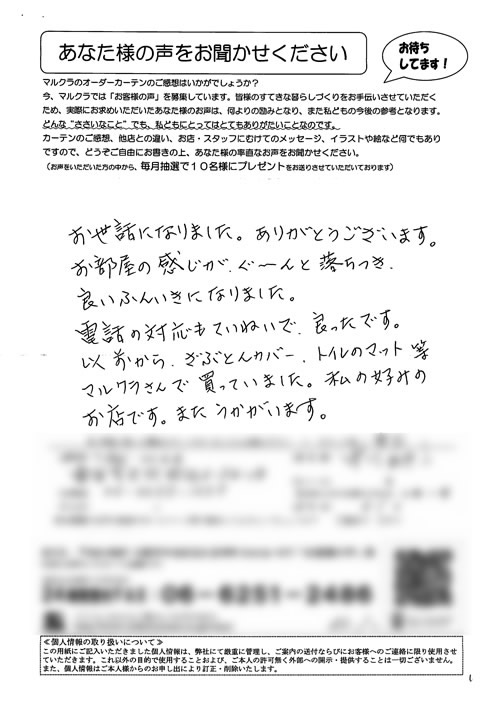 あなた様の声をお聞かせください
お待ち
してます！
マルクラのオーダーカーテンのご感想はいかがでしょうか？
今、マルクラでは「お客様の声」を募集しています。皆様のすてきな暮らしづくりをお手伝いさせていただく
ため、実際にお求めいただいたあなた様のお声は、何よりの励みとなり、また私どもの今後の参考となります。
どんな“ささいなこと”でも、私どもにとってはとてもありがたいことなのです。
カーテンのご感想、他店との違い、お店・スタッフにむけてのメッセージ、イラストや絵など何でもあり
ですので、どうぞご自由にお書きの上、あなた様の率直なお声をお聞かせください。
（お声をいただいた方の中から、毎月抽選で１０名様にプレゼントをお送りさせていただいております）
お世話になりました。ありがとうございます。
お部屋の感じが、ぐ〜んと落ちつき、
良いふんいきになりました。
電話の対応もていねいで、良ったです。
以前から、ざぶとんカバー、トイレのマット等
マルクラさんで買っていました。私の好みの
お店です。またうかがいます。
06-6251-2486
≪個人情報の取り扱いについて≫
この用紙にご記入いただきました個人情報は、弊社にて厳重に管理し、ご案内の送付ならびにお客様へのご連絡に限り使用させ
ていただきます。これ以外の目的で使用することおよび、ご本人の許可無く外部への開示・提供することは一切ございません。
また、個人情報はご本人様からのお申し出により訂正・削除いたします。